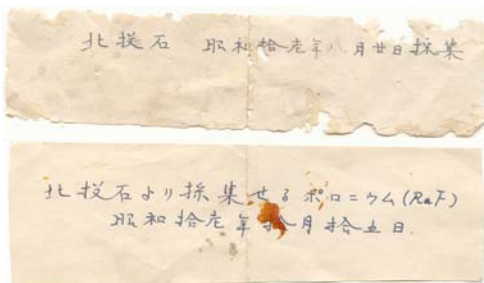 北投石　昭和拾壱年八月廿日採集
北投石より採集せるポロニウム(RaF)
昭和拾壱年拾月拾五日.